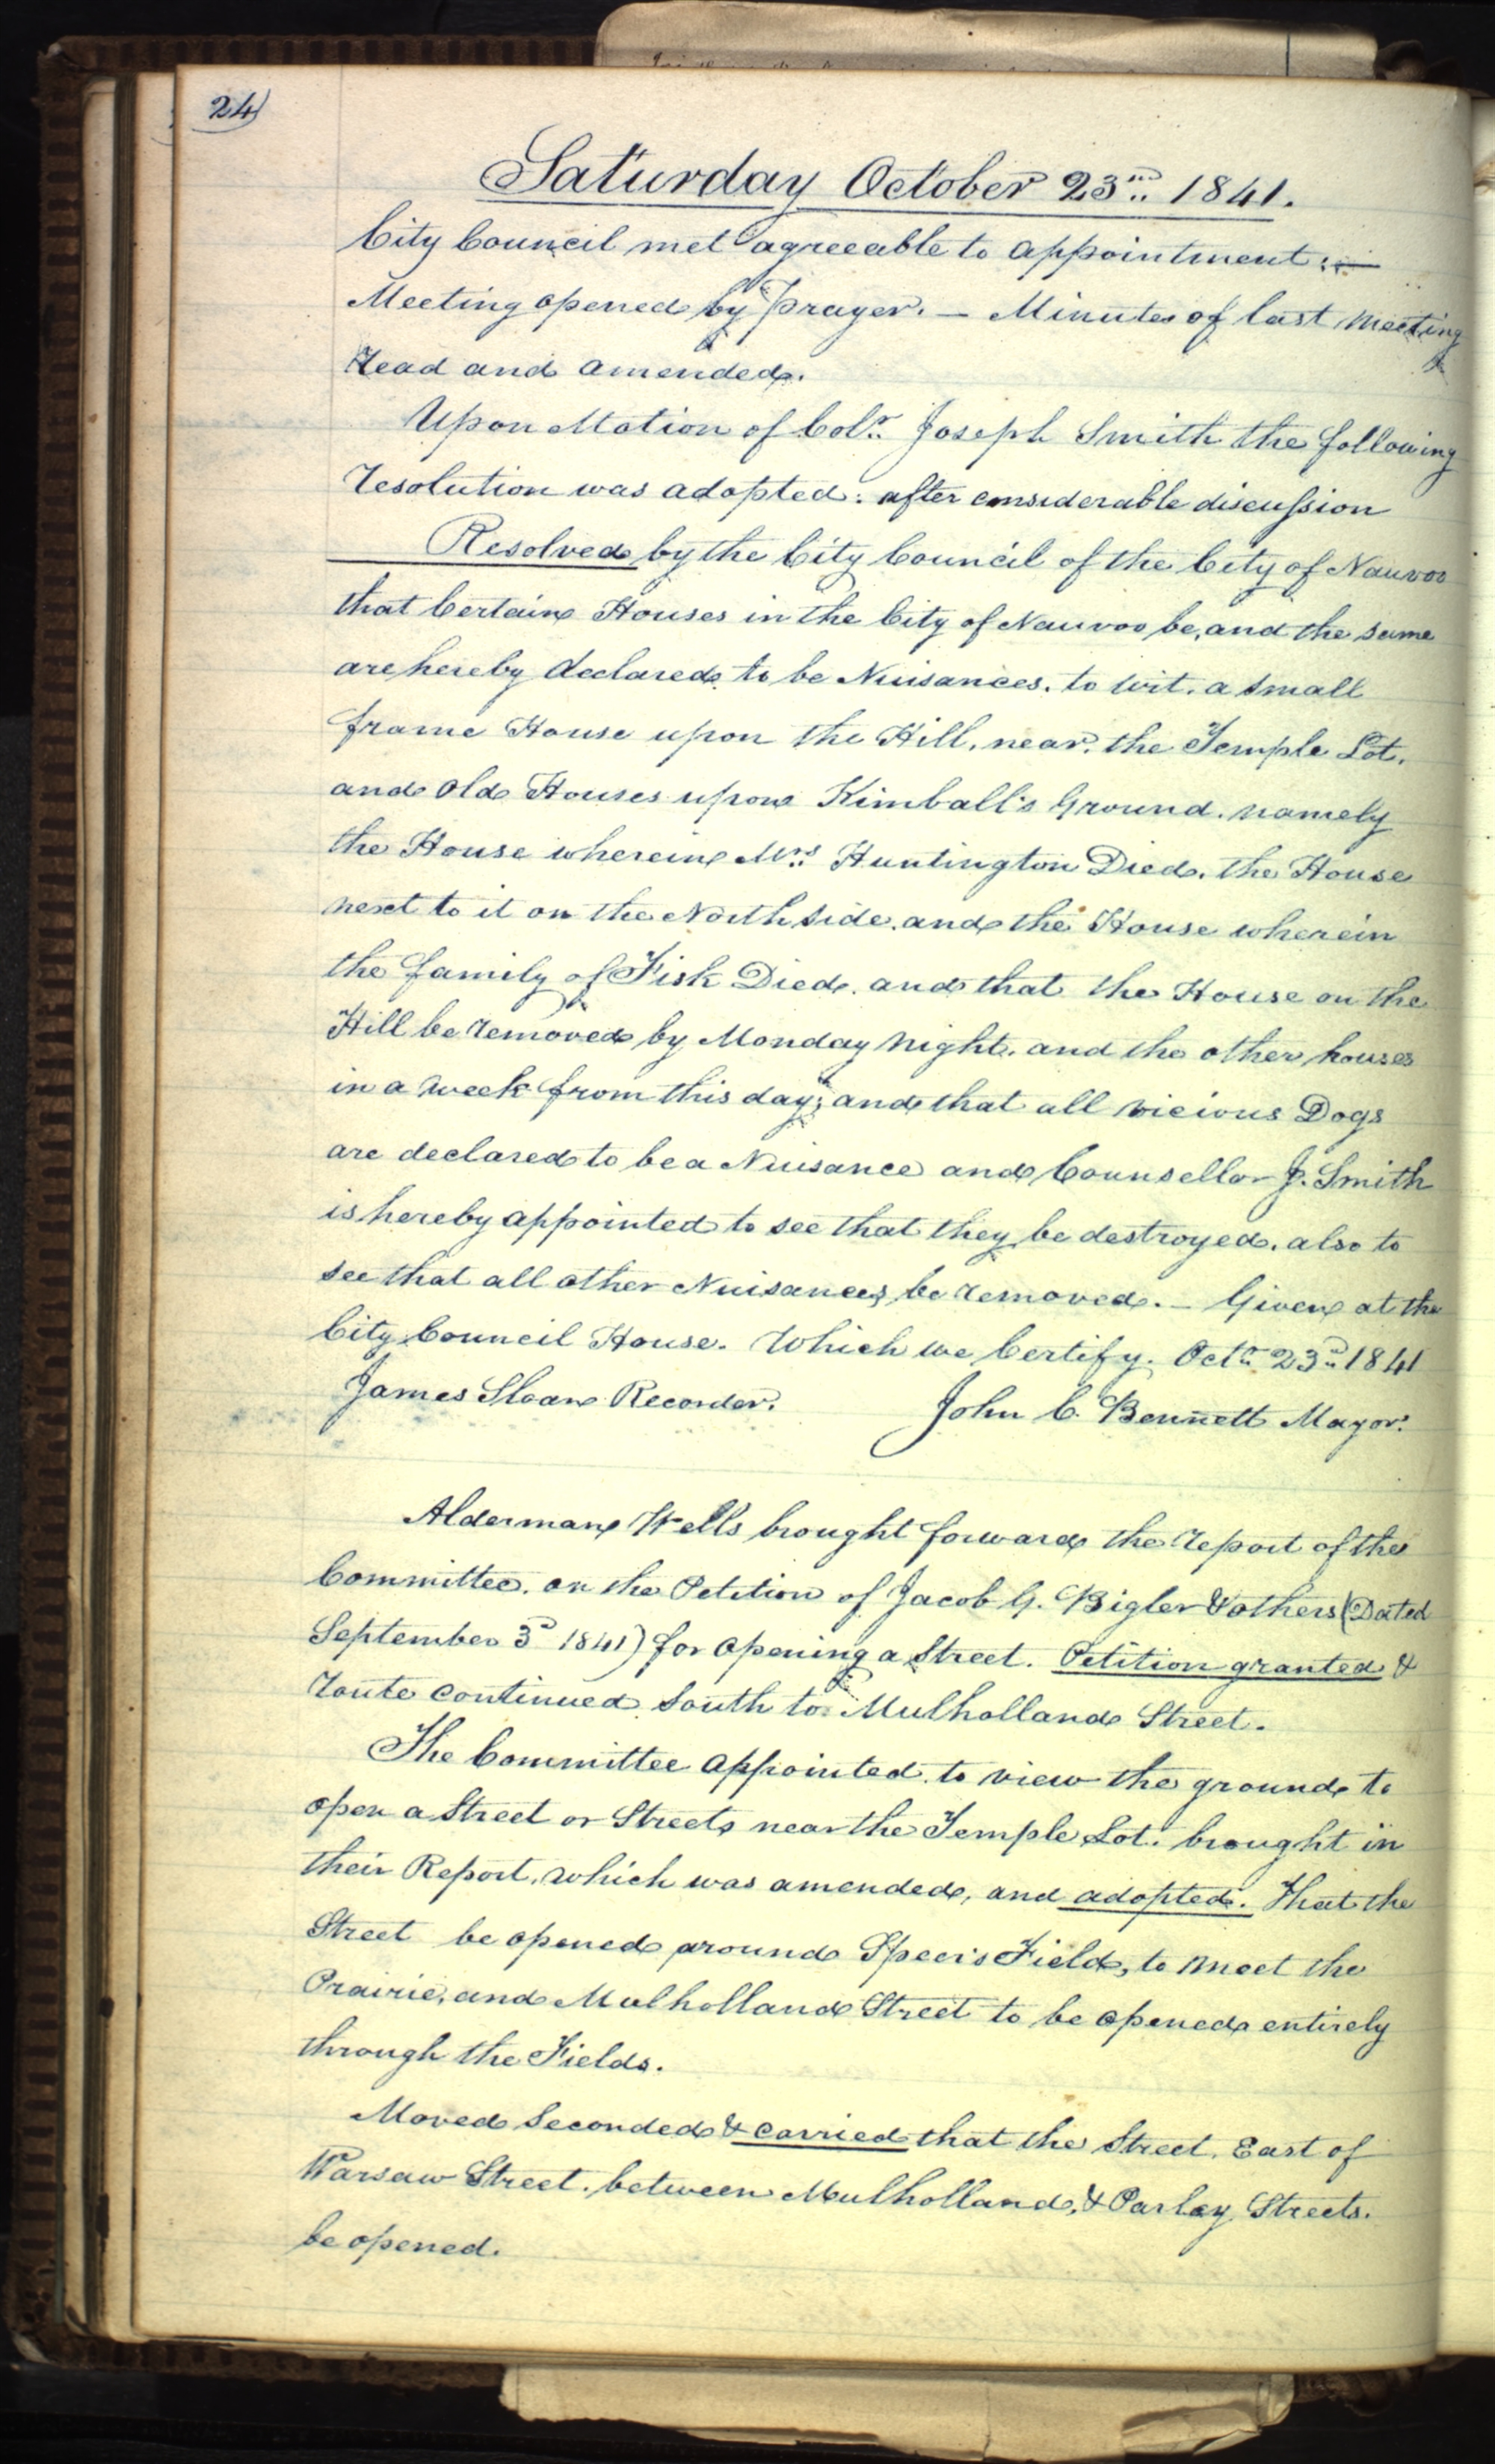 24)
Saturday October 23rd. 1841.
City Council met agreeable to appointment:—
Meeting opened by prayer. — Minutes of last meeting
read and amended.
Upon Motion of Colr. Joseph Smith the following
resolution was adopted: after considerable discussion
Resolved by the City Council of the City of Nauvoo
that Certain Houses in the City of Nauvoo be, and the same
are hereby declared to be Nuisances, to wit. a small
frame House upon the Hill, near, the Temple Lot.
and old Houses upon Kimball's Ground. namely
the House wherein Mrs. Huntington Died, the House
next to it on the North side, and the House wherein
the family of Fisk Died, and that the House on the
Hill be removed by Monday night, and the other houses
in a week from this day; and that all vicious Dogs
are declared to be a Nuisance and Counsellor J. Smith
is hereby appointed to see that they be destroyed, also to
see that all other Nuisances be removed. — Given at the
City Council House. Which we Certify. Octr. 23d. 1841
James Sloan Recorder.
John C. Bennett Mayor.
Alderman Wells brought forward the report of the
Committee, on the Petition of Jacob G. Bigler & others (Dated
September 3d 1841) for opening a Street. Petition granted &
route continued South to Mulholland Street.
The Committee appointed to view the ground to
open a Street or Streets near the Temple Lot. brought in
their Report, which was amended, and adopted. That the
Street be opened around Speer's Field, to meet the
Prairie, and Mulholland Street to be opened entirely
through the Fields.
Moved Seconded & carried that the Street, East of
Warsaw Street, between Mulholland, & Parley Streets.
be opened.